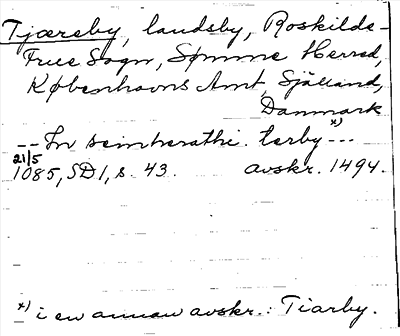 Tjæreby, landsby, Roskilde-
Frue Sogn, Sømme Herred,
Københavns Amt, Sjælland,
Danmark
-- In seimherathi. terby *) ---
21/5
1085, SD1, s. 43. avskr. 1494.
*) i en annan avskr.: Tiarby.